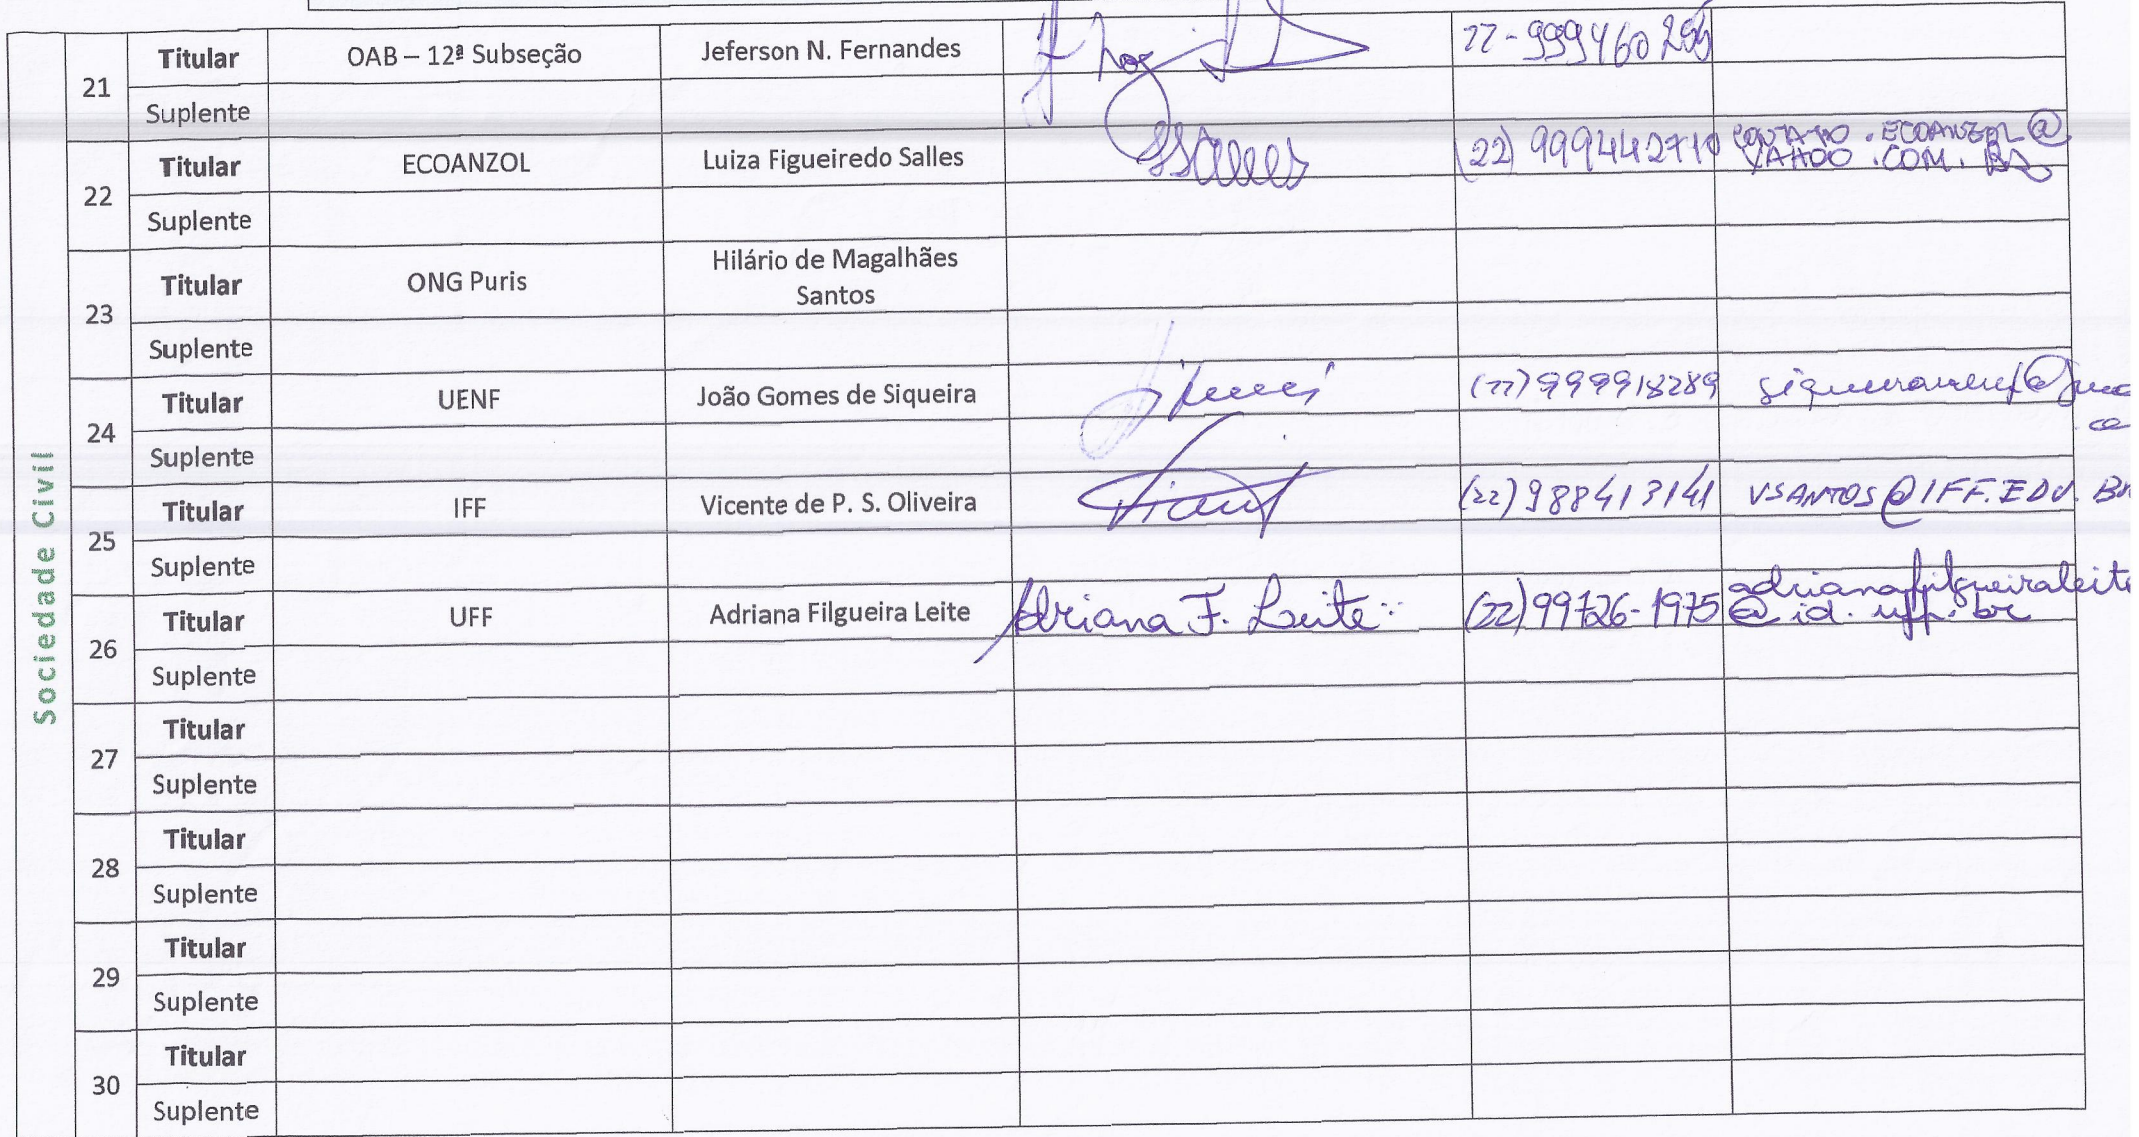 Sociedade Civil
21 Titular OAB – 12ª Subseção Jeferson N. Fernandes
Suplente
22 Titular ECOANZOL Luiza Figueiredo Salles SSalles (22) 999442710 CONTATO.ECOANZOL@
YAHOO.COM.BR
Suplente
23 Titular ONG Puris Hilário de Magalhães
Santos
Suplente
24 Titular UENF João Gomes de Siqueira (22) 999918289
Suplente
25 Titular IFF Vicente de P. S. Oliveira (22) 988413141 VSANTOS@IFF.EDU.BR
Suplente
26 Titular UFF Adriana Filgueira Leite Adriana F. Leite (22) 99726-1975 adrianafilgueiraleite
@id.uff.br
Suplente
27 Titular
Suplente
28 Titular
Suplente
29 Titular
Suplente
30 Titular
Suplente